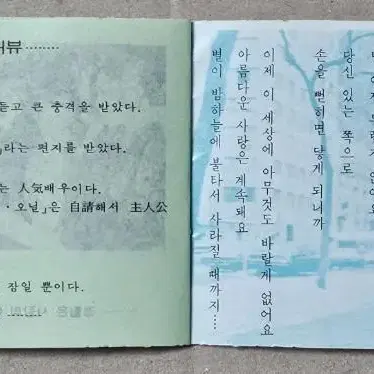 뷰........
듣고 큰 충격을 받았다.
」라는 편지를 받았다.
는 人気배우이다.
·오닐」은 自請해서 主人公
장일 뿐이다.
당신 있는 쪽으로
손을 뻗히면 닿게 되니까
이제 이 세상에 아무것도 바랄게 없어요
아름다운 사랑은 계속돼요
별이 밤하늘에 불타서 사라질 때까지……